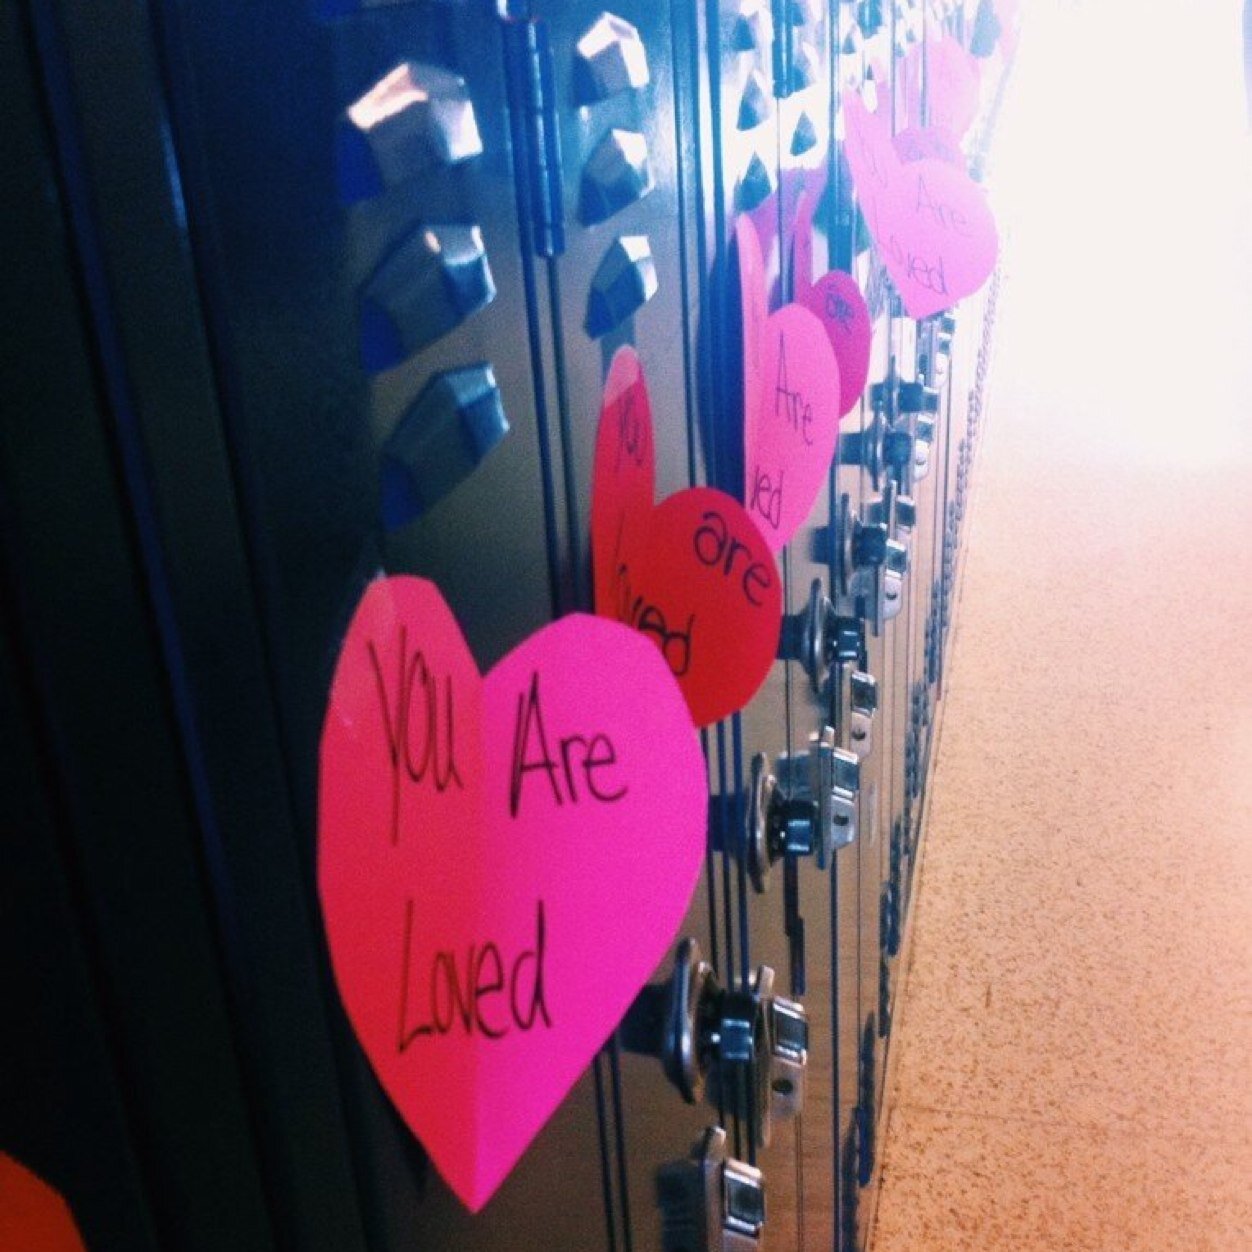 You Are
Loved
You are
Loved
Are
ved
are
You Are
Loved